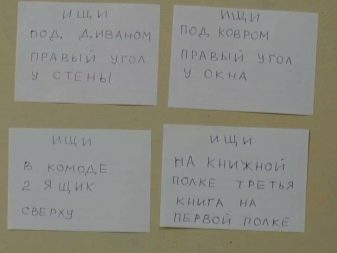 ИЩИ
ПОД ДИВАНОМ
ПРАВЫЙ УГОЛ
У СТЕНЫ
ИЩИ
ПОД КОВРОМ
ПРАВЫЙ УГОЛ
У ОКНА
ИЩИ
В КОМОДЕ
2 ЯЩИК
СВЕРХУ
ИЩИ
НА КНИЖНОЙ
ПОЛКЕ ТРЕТЬЯ
КНИГА НА
ПЕРВОЙ ПОЛКЕ